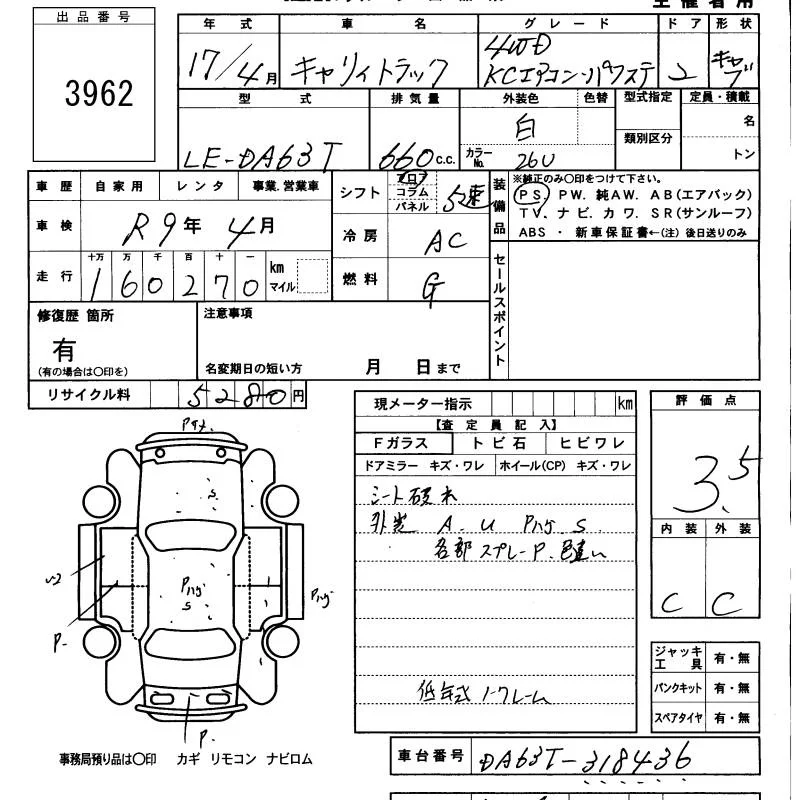 出品番号
3962
年式 車名 グレード ドア 形状
17/4月 キャリイトラック 4WD KCエアコン・パワステ 2 キャブ
型式 排気量 外装色 色替 型式指定 定員・積載
LE-DA63T 660c.c. 白 カラーNo. 26U 類別区分 名 トン
車歴 自家用 レンタ 事業.営業車
車検 R9年 4月
走行 十万 万 千 百 十 一
160270 km マイル
シフト フロア コラム パネル 5速
冷房 AC
燃料 G
装備品 ※純正のみ○印をつけて下さい。
PS. PW. 純AW. AB(エアバック)
TV. ナビ. カワ. SR(サンルーフ)
ABS ・ 新車保証書←(注) 後日送りのみ
セールスポイント
修復歴 箇所
有
(有の場合は○印を)
注意事項
名変期日の短い方 月 日まで
リサイクル料 5280円
現メーター指示 km
【査定員記入】
Fガラス トビ石 ヒビワレ
ドアミラー キズ・ワレ ホイール(CP) キズ・ワレ
外装 A. U Pハゲ S.
各部 スプレーP. 色違い
低年式
評価点
3.5
内装 外装
C C
S
U2
Pハゲ
S
Pハゲ
P.
P.
ジャッキ工具 有・無
パンクキット 有・無
スペアタイヤ 有・無
事務局預り品は○印 カギ リモコン ナビロム
車台番号 DA63T-318436